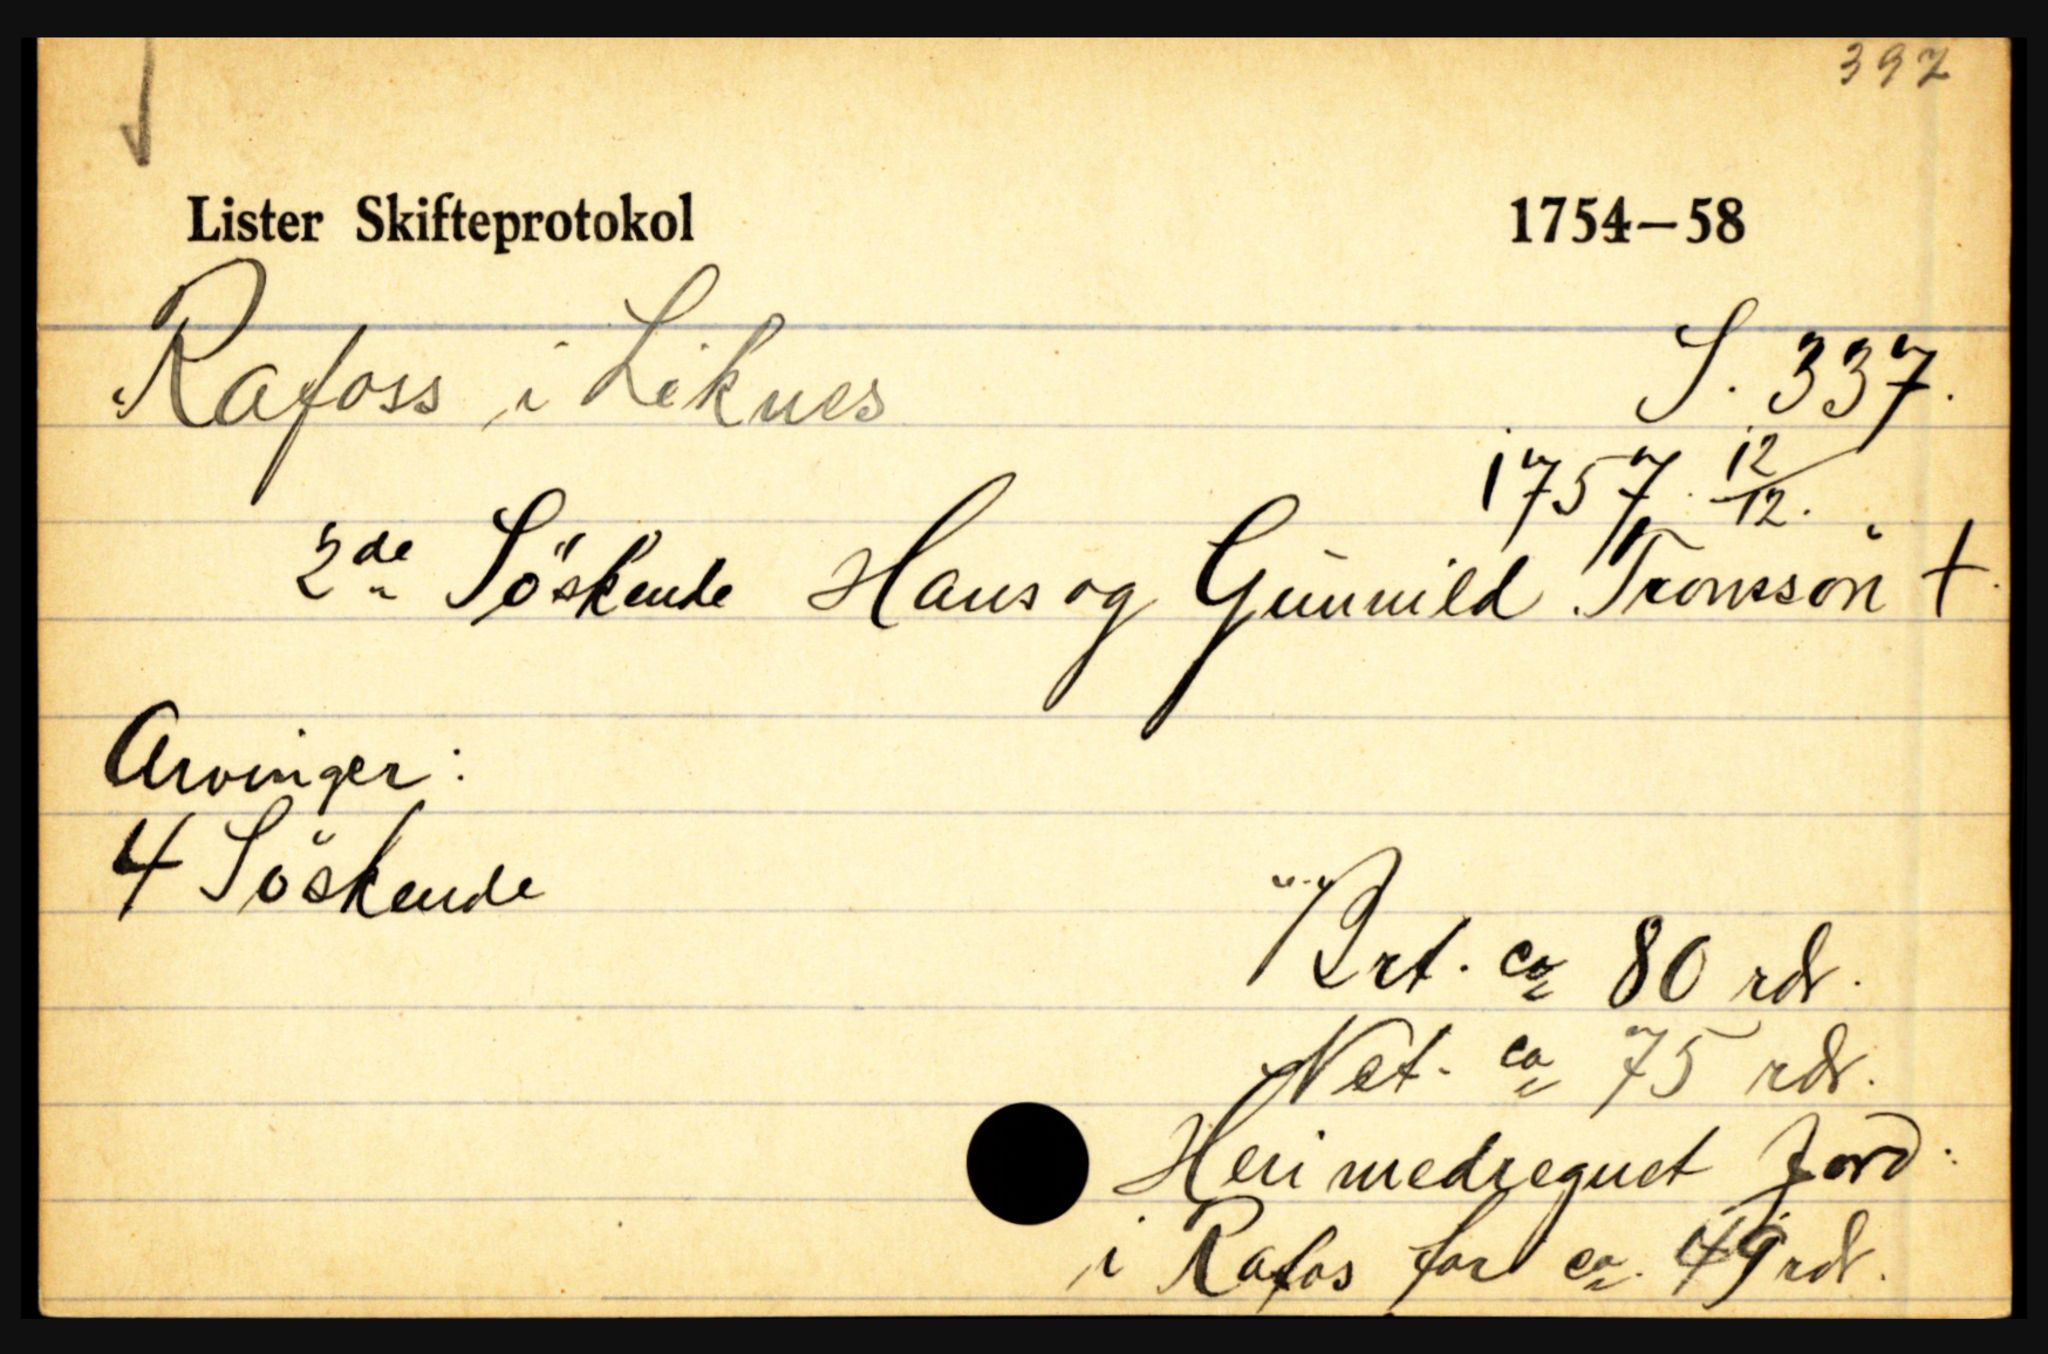 392
Lister Skifteprotokol 1754–58
Rafoss i Liknes S. 337.
1757. 12/12.
2de Söskende Hans og Gunnild Tronssön +
Arvinger:
4 Söskende
Brt. ca 80 rdr.
Net. ca 75 rdr.
Heri medregnet Jord
i Rafos for ca. 49 rdr.